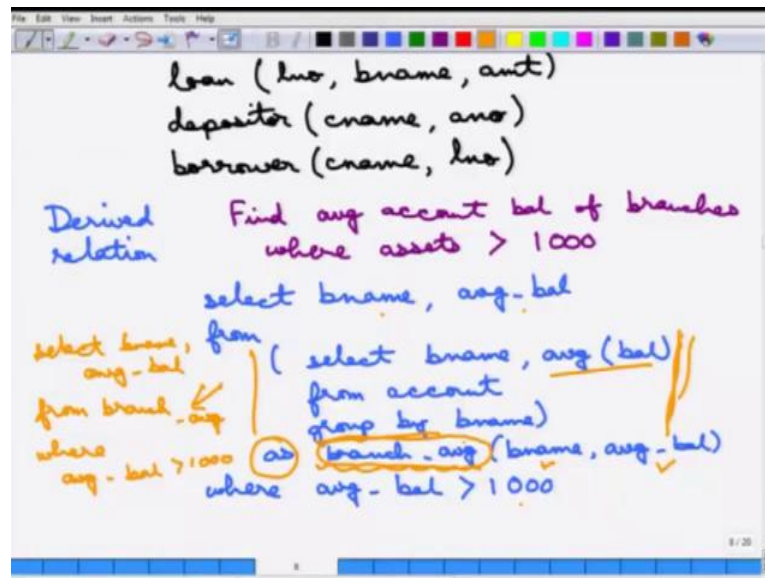 File Edit View Insert Actions Tools Help
loan (lno, bname, amt)
depositor (cname, ano)
borrower (cname, lno)
Derived relation
Find avg account bal of branches
where assets > 1000
select bname, avg_bal
from
( select bname, avg (bal)
from account
group by bname)
as branch_avg (bname, avg_bal)
where avg_bal > 1000
select bname,
avg_bal
from branch_avg
where
avg_bal > 1000
8 / 20
8